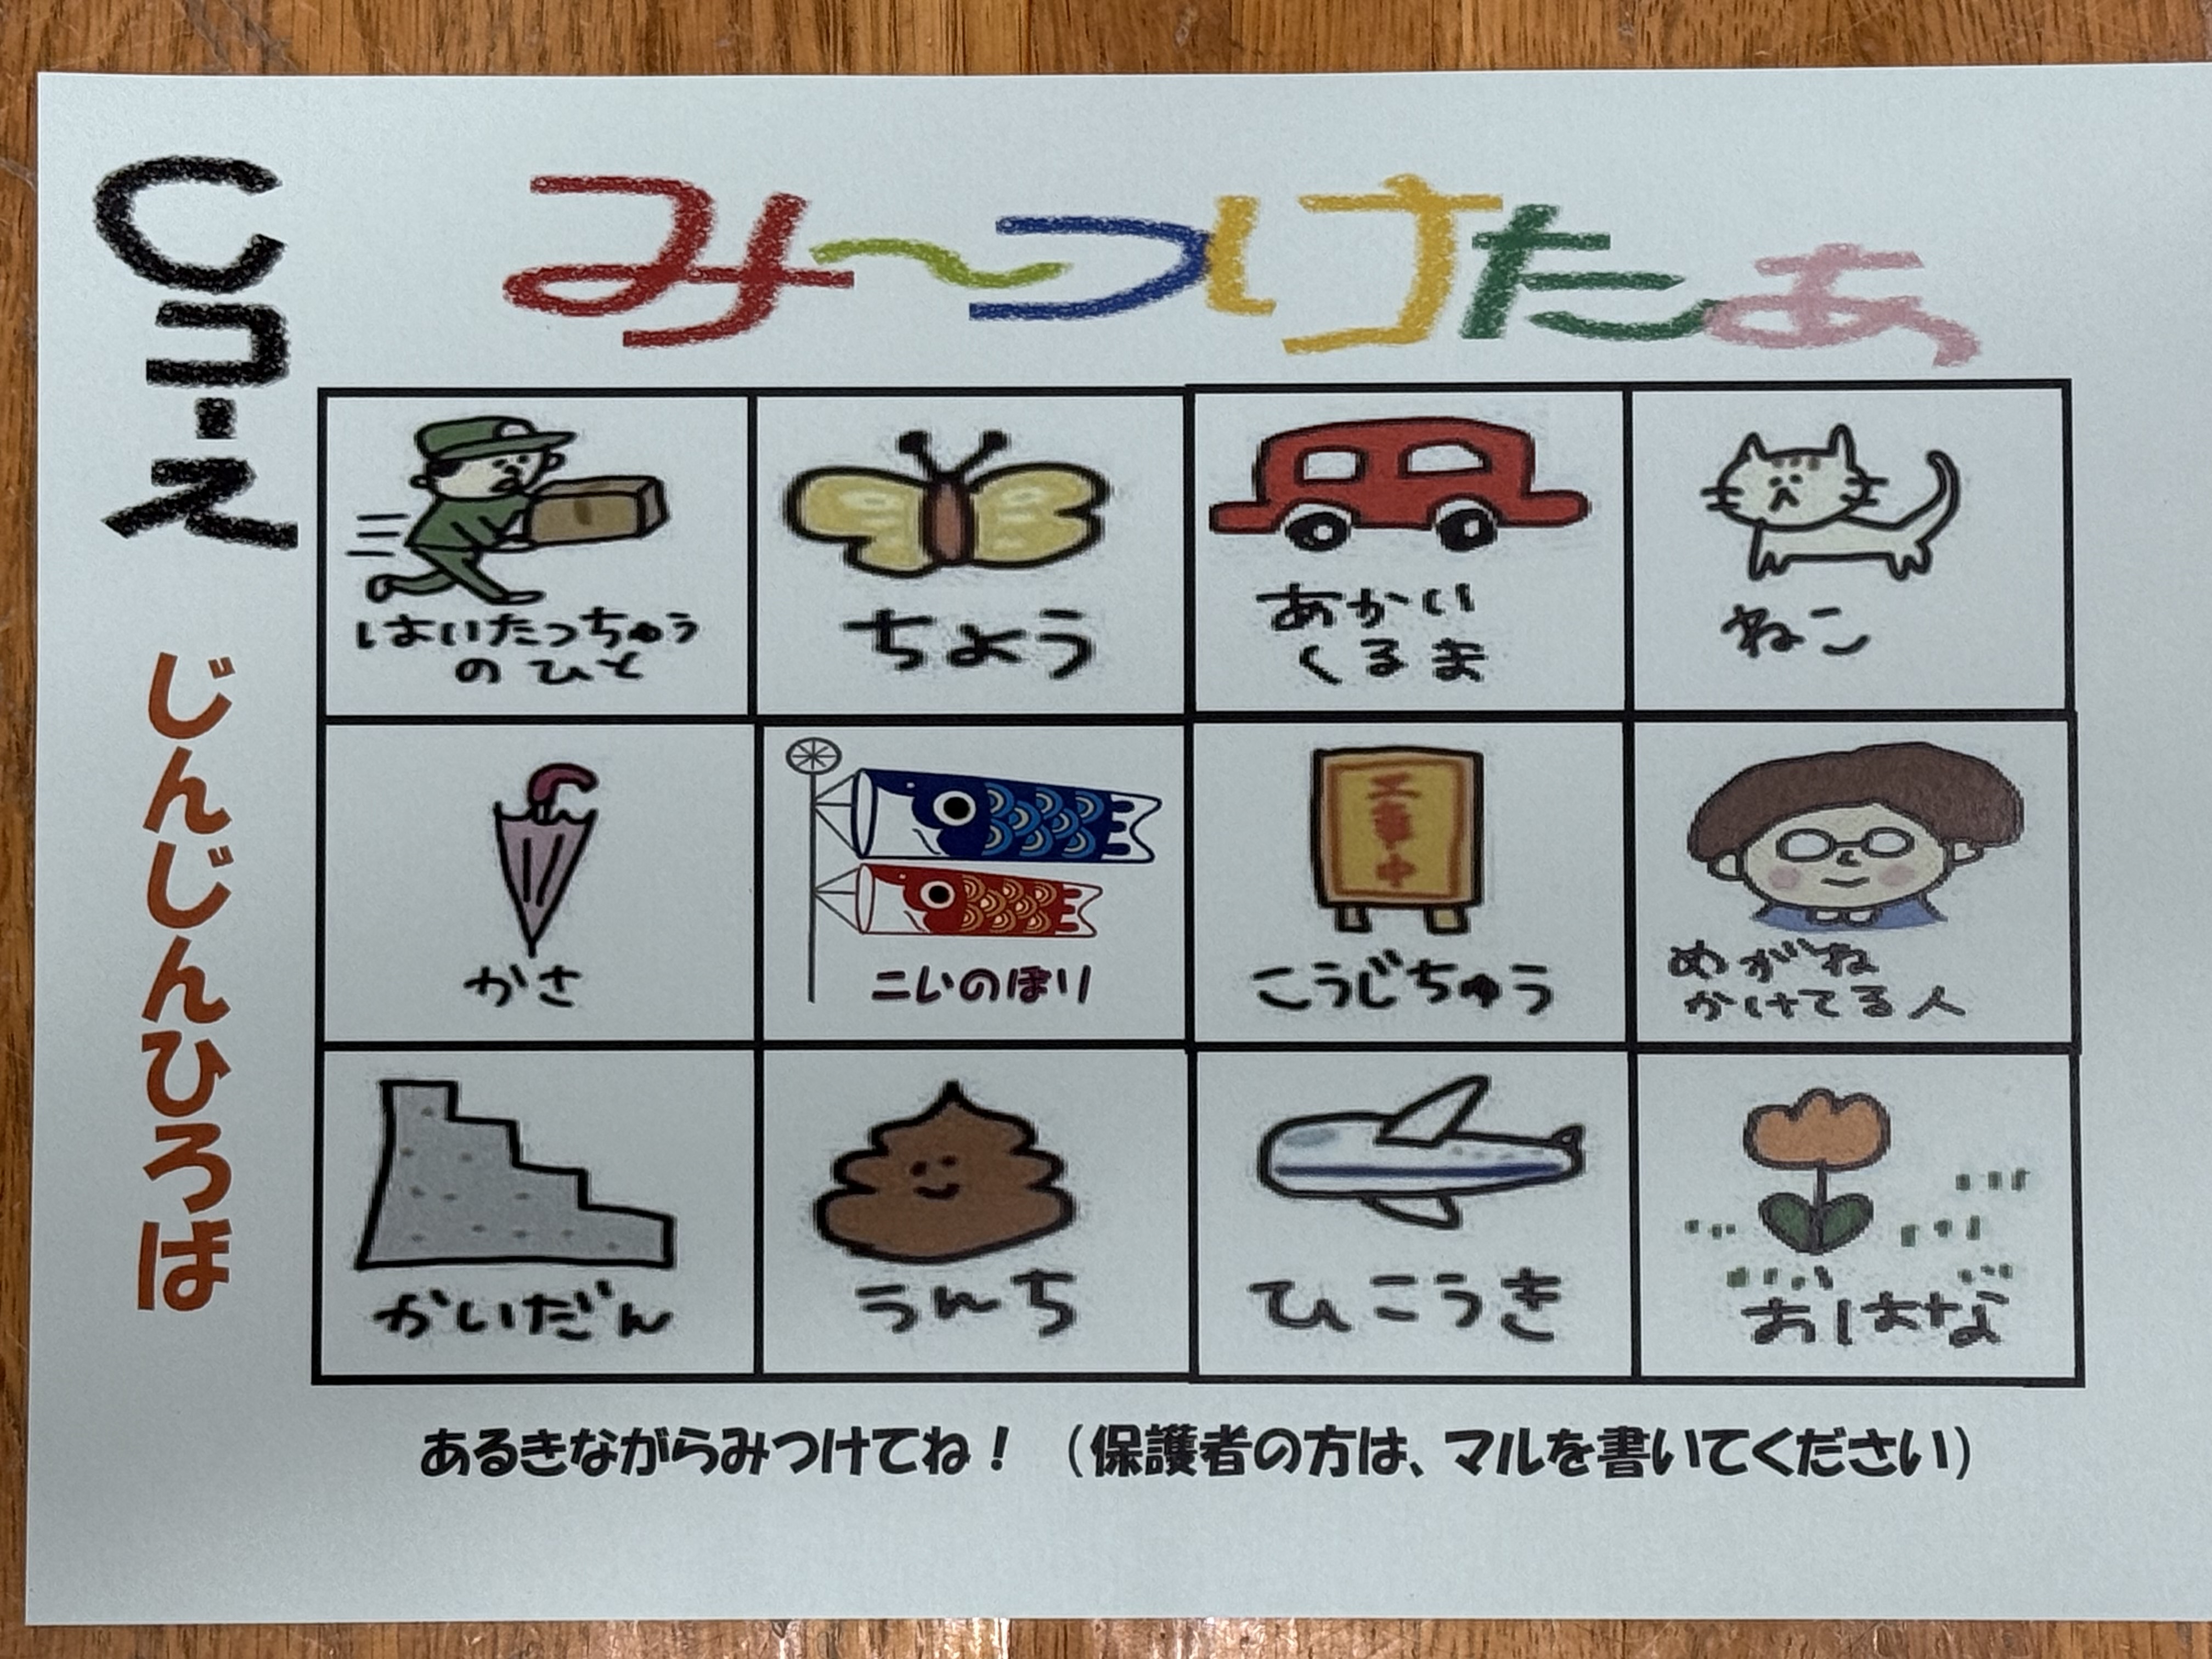 Cコース
み～つけたぁ
はいたつちゅう
のひと
ちょう
あかい
くるま
ねこ
かさ
こいのぼり
工事中
こうじちゅう
めがね
かけてる人
かいだん
うんち
ひこうき
おはな
じんじんひろば
あるきながらみつけてね！（保護者の方は、マルを書いてください）